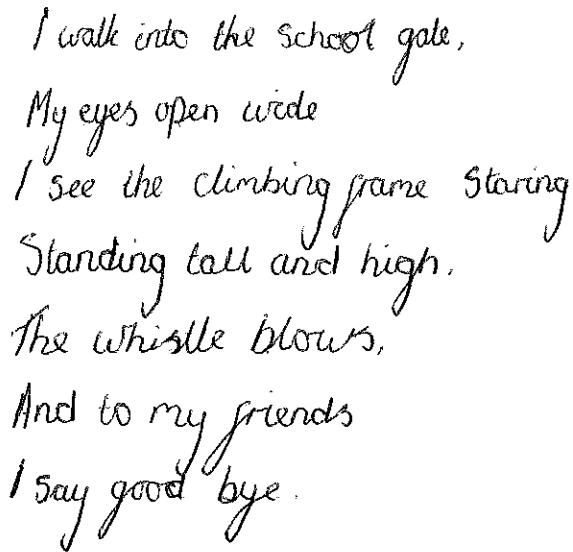 I walk into the school gate,
My eyes open wide
I see the climbing frame staring
Standing tall and high.
The whistle blows,
And to my friends
I say good bye.